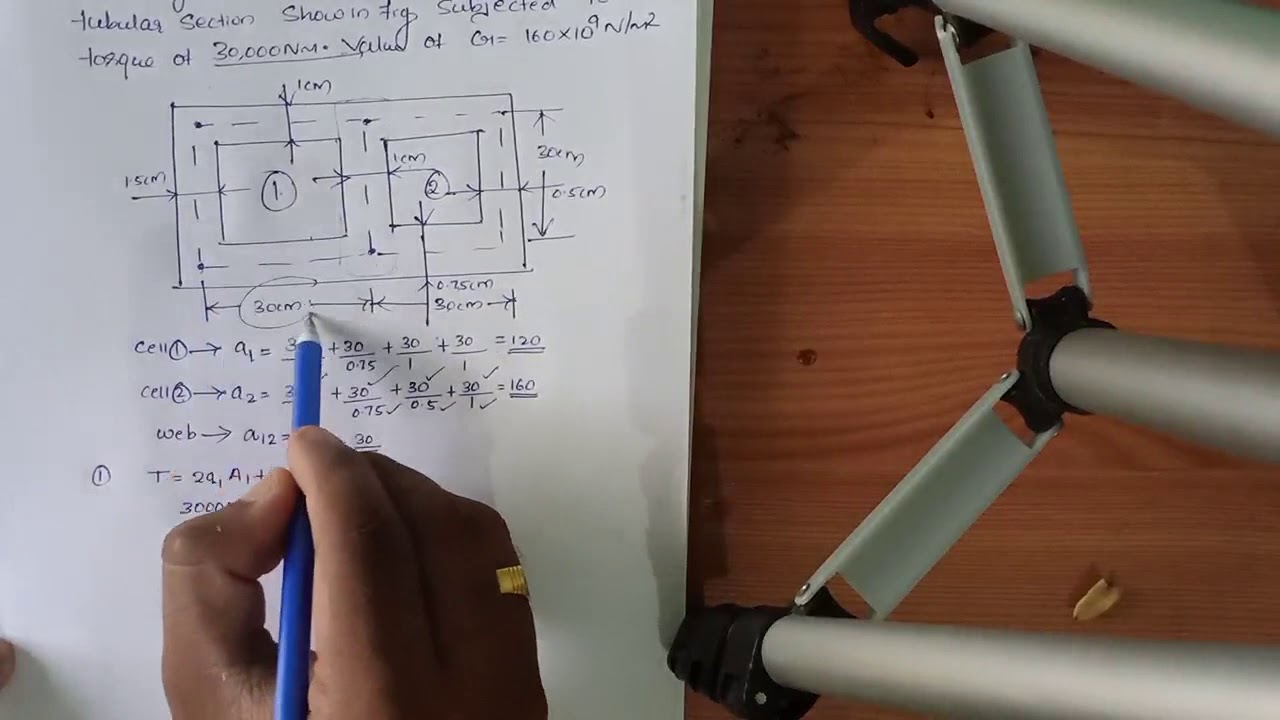 tubular Section Shown in fig Subjected
torque of 30,000Nm. Value of G= 160×10⁹ N/m²
1cm
1.5cm
1
1cm
2
30cm
0.5cm
0.75cm
30cm
30cm
cell① → a₁ = + 30/0.75 + 30/1 + 30/1 = 120
cell② → a₂ = + 30/0.75 + 30/0.5 + 30/1 = 160
web → a₁₂ = 30
① T = 2q₁A₁+